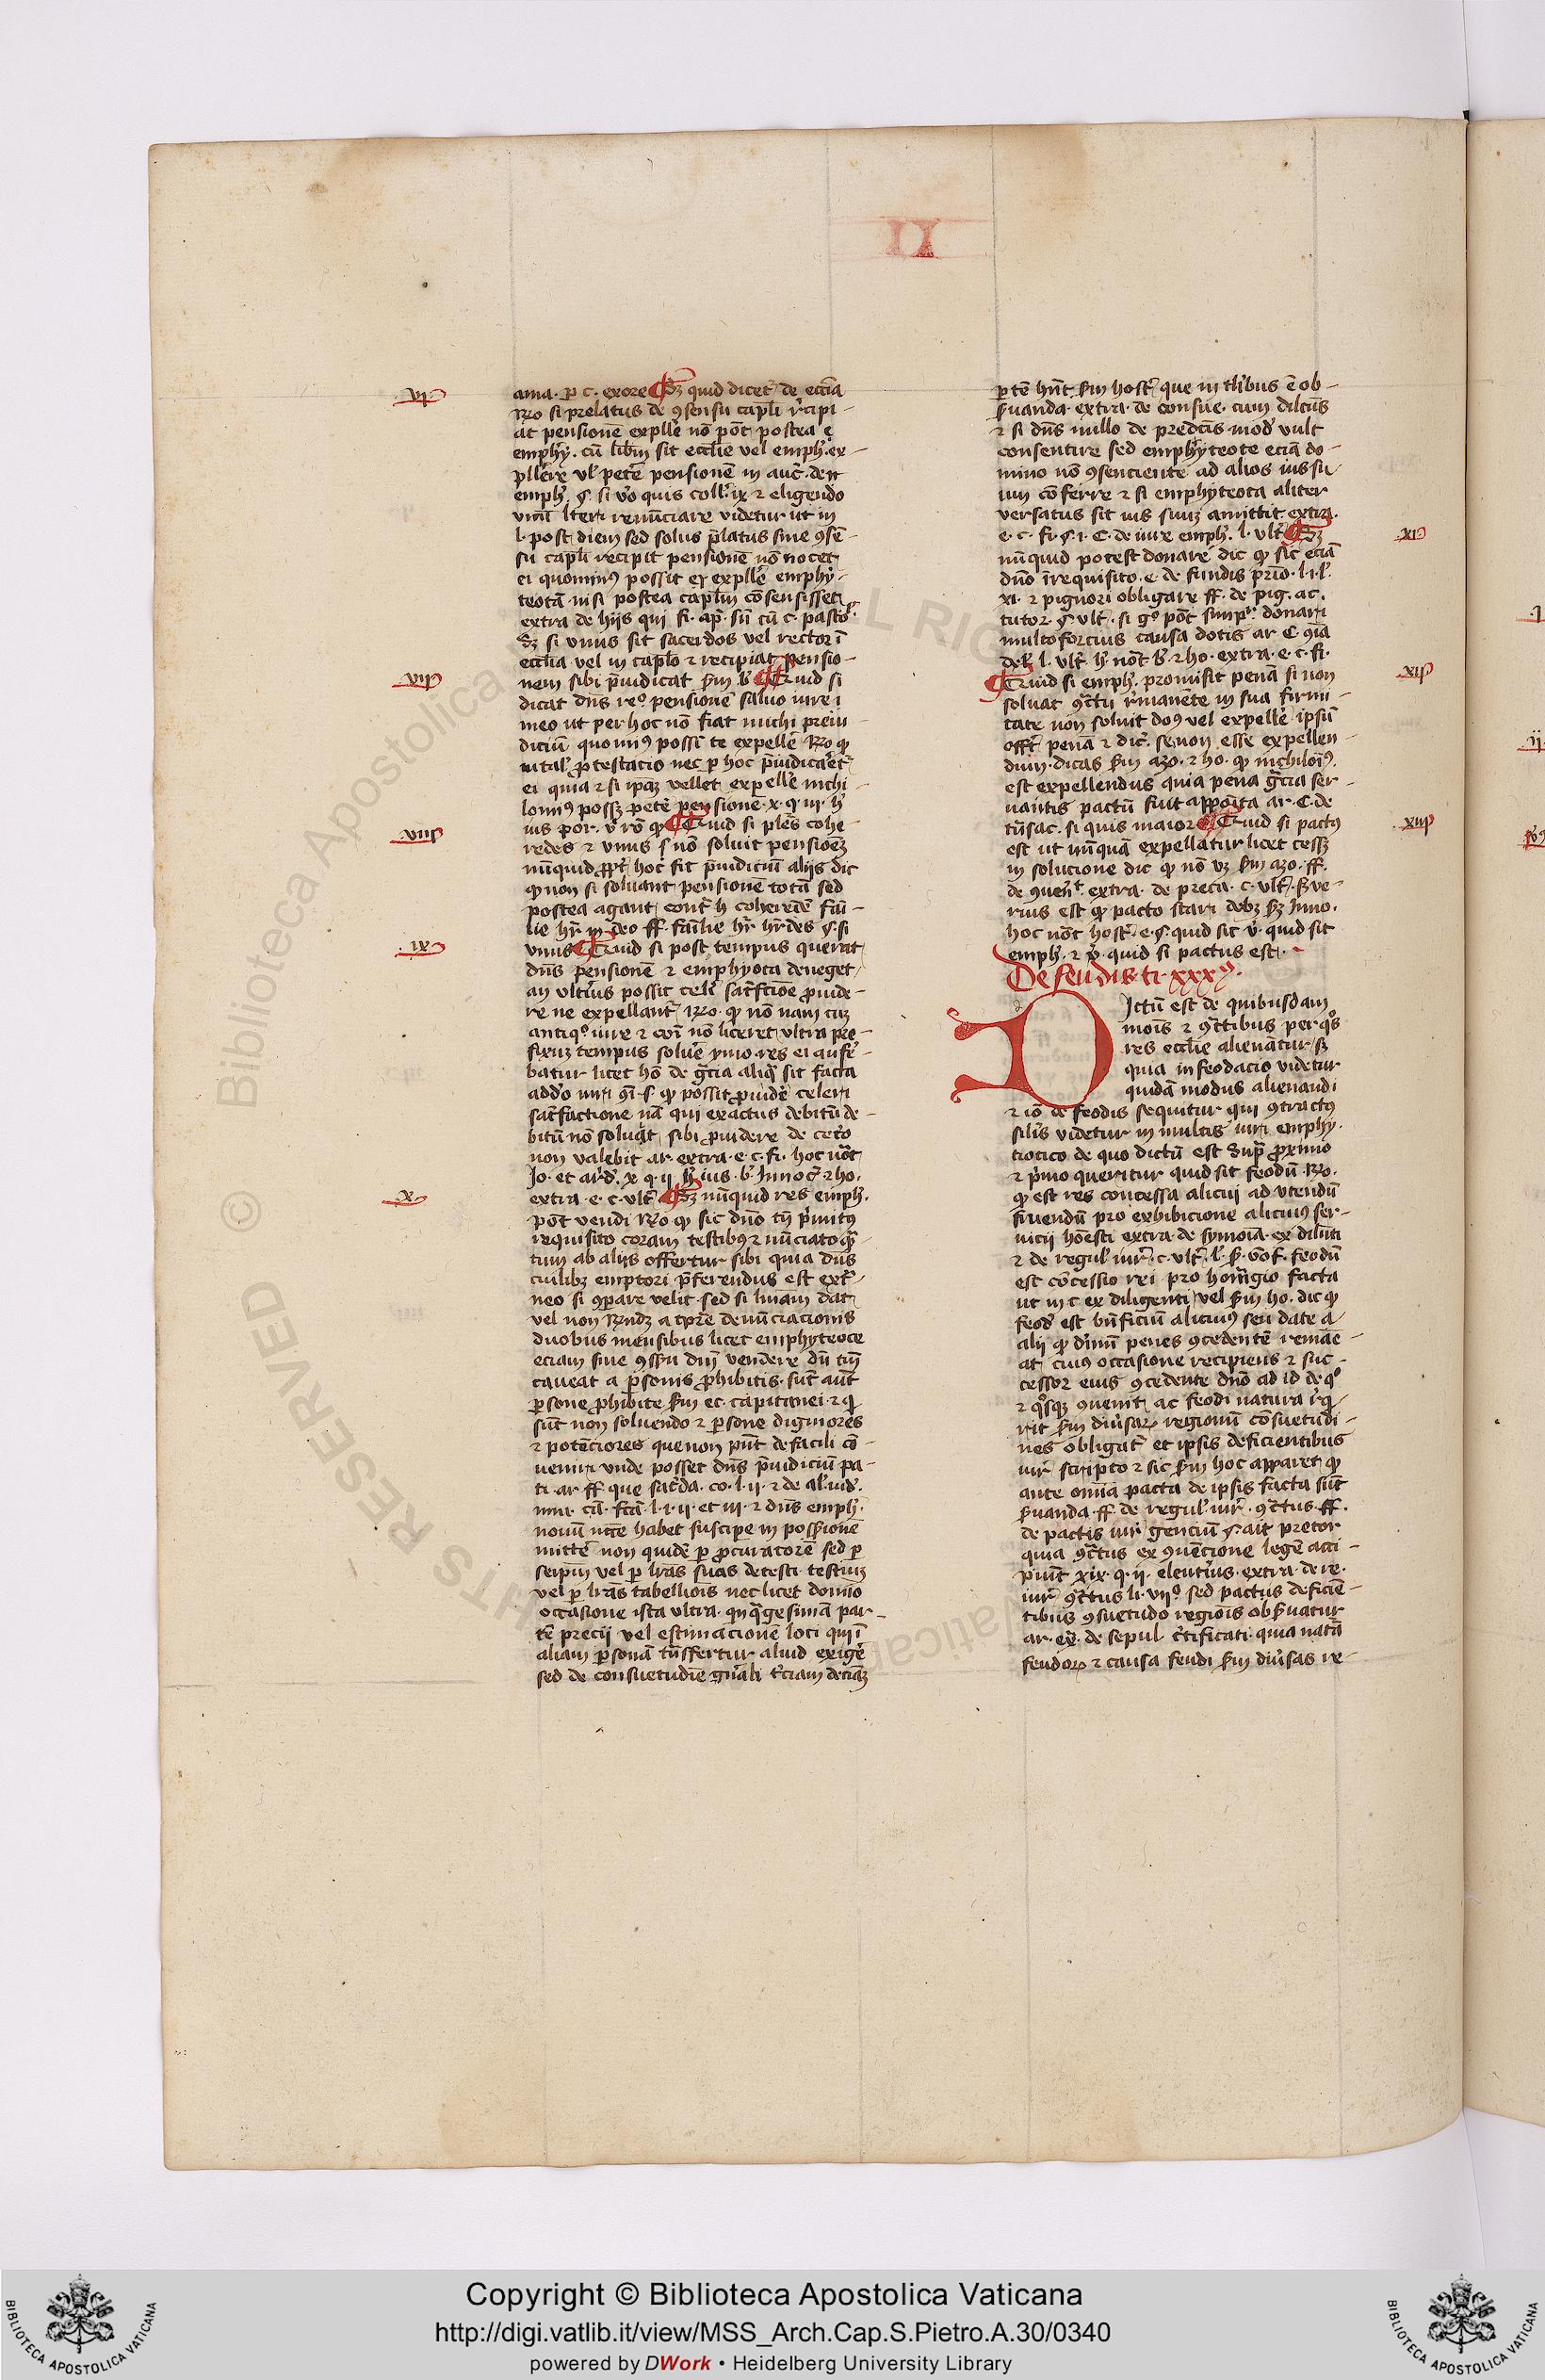 II
vi
ama. p c. exore Sz quid dicet de eccia
Ro si prelatus de 9sensu capli rcipi-
at pensionē expllē nō pōt postea e
emphy. cū librm sit ecclie vel emph. ex
pllere vl petē pensionē in auc. de n
emph. §. si vo quis coll. ix ⁊ eligendo
vnū lteri renūciare videtur ut in
l. post diem sed solus platus sine 9sē-
su capli recipit pensionē nō nocet
ei quomin9 possit eū expllē emphy-
teotā nisi postea caplm cōsensisset
extra de hijs qui fi. ap. sn cū c. pasto
Sz si vnus sit sacerdos vel rector ī
ecclia vel in caplo ⁊ recipiat pensio-
vii
nem sibi piudicat sm b Quid si
dicat dns re° pensionē saluo iure
meo ut per hoc nō fiat michi preiu-
diciū quomin9 possī te expellē Ro q
in tal' ptestacio nec p hoc piudicaret
ei quia ⁊ si ipaz vellet expellē nichi
lomin9 possz petē pensionē. x. q. iii. h
viii
ius por. v ro q Quid si ples cohe
redes ⁊ vnus s nō soluit pensioēz
nūquid ppt hoc fit piudiciū alijs dic
q non si soluant pensionē totā sed
postea agant cont h coheredē fāi-
lie hr in deo ff. familie hr hrdes §. si
ix
vnus Quid si post tempus querat
dns pensionē ⁊ emphyota deneget
an vlteri9 possit celi satfctiōe puide-
re ne expellant Ro. q nō nam cuz
antiq° iure ⁊ coī nō liceret vltra pre-
fixuz tempus soluē ymo res ei aufe-
batur licet hō de gcia aliq sit facta
addo iuri 9i. s. q possit puidē celeri
satfactione nā qui exactus debitū de-
bitū nō soluat sibi puidere de ceto
non valebit ar. extra. e. c. fi. hoc nōt
Jo. et ard. x. q. ii. h ius. b. Innoc ⁊ ho.
x
extra. e. c. vlt Sz nūquid res emph.
pōt vendi Ro q sic dno tn pmit9
requisito coram testib9 ⁊ nūciato q
tum ab alijs offertur sibi quia dns
cuilibz emptori pferendus est ext-
neo si 9pare velit. sed si linam dat
vel non Rndz a tpre denūciacionis
duobus mensibus licet emphyteoce
eciam sine 9ssu dni vendere dū tn
caueat a psonis phibitis. sūt aūt
psone phibite sm ec. capitanei. ⁊ q
sūt non soluendo ⁊ psone digniores
⁊ potēciores que non pnt de facili cō-
ueniri vnde posset dns piudiciū pa-
ti. ar. ff. que satda. co. l. ii. ⁊ de al. iud.
mut. cā. fcā. l. i. ii. et iii. ⁊ dns emph.
nouū ntē habet suscipe in possionē
mittē non quidē p pcuratorē sed p
seipm vel p lras suas de testi. testiuz
vel p lras tabellionis nec licet domio
occasione ista vltra. qnqgesimā par-
tē precii vel estimacionē loci qui ī
aliam psonā tnsfertur aliud exigē
sed de consuetudīe gnali tciam deciāz
ptē hnt sm host que in tlibus ē ob-
suanda. extra. de consue. cum dilctus
⁊ si dns nullo de predctis mod vult
consentire sed emphyteote eciā do-
mino nō 9senciente ad alios ius su-
um cōferre ⁊ si emphyteota aliter
versatus sit ius suuz amittit extra.
xi
e. c. fi. §. i. C. de iure emph. l. vlt Sz
nūquid potest donare dic q sic eciā
dno irequisito. e. de fundis prio. l. i. l.
xi. ⁊ pignori obligare ff. de pig. ac.
tutor. §. vlt. si g° pōt simp donari
multo forcius causa dotis ar. C. 9ia
de. b l. vlt. h. nōt b. ⁊ ho. extra. e. c. fi.
xii
Quid si emph. promisit penā si non
soluat 9ctu rmanēte in sua firmi
tate non soluit do9 vel expellē ipsū
offt penā ⁊ dic. se non esse expellen
dum. dicas sm azo. ⁊ ho. q nichilom9.
est expellendus quia pena gcia ser-
uantis pactū fuit apposita ar. C. de
xiii
tnsac. si quis maior Quid si pact9
est ut nūquā expellatur licet cessz
in solucione dic q nō vz sm azo. ff.
de 9uent. extra. de preca. c. vlt. s ve-
rius est q pacto stari debz sz Inno.
hoc nōt host. e. §. quid sit v. quid sit
emph. ⁊ v. quid si pactus est.
De feudis ti. xxx
Dictū est de quibusdam
mois ⁊ 9ctibus per qs
res ecclie alienātur sz
quia infeodacio videtur
quidā modus alienandi
⁊ iō de feodis sequitur qui 9tract9
silis videtur in multis iuri emphy.
tiotico de quo dictū est sup proximo
⁊ pmo queritur quid sit feodū. Ro.
q est res concessa alicui ad vtendū
fruendū pro exhibicione alicuius ser-
uicij honesti extra. de symoia. ex diluti
⁊ de regul iur. c. vlt. l. s. vof. feodū
est concessio rei pro homagio facta
ut in c ex diligenti vel sm ho. dic q
feod est bnficiū alicui9 seu date a
alij q dnium penes 9cedentē remāe-
at cuius occasione recipiens ⁊ suc-
cessor eius 9cedente dno ad id de q°
⁊ qusqz 9uenit ac feodi natura rq-
rit sm diusarum regionū cōsuetudi-
nes obligat et ipsis deficientibus
iur scripto ⁊ sic sm hoc apparet q
ante omia pacta de ipsis facta sūt
suanda. ff. de regul. iur. 9ctus. ff.
de pactis iur genciū §. ait pretor
quia 9ctus ex 9uēcione legē acci-
piūt xix. q. ii. eleuteri9. extra. de re.
iur 9ctus li. vii°. sed pactis deficiē-
tibus 9suetudo regiois obsuatur
ar. ex. de sepul ctificati. quia natā
feudorum ⁊ causa feudi sm diusas re-
Copyright © Biblioteca Apostolica Vaticana
http://digi.vatlib.it/view/MSS_Arch.Cap.S.Pietro.A.30/0340
powered by DWork • Heidelberg University Library
BIBLIOTECA APOSTOLICA VATICANA
BIBLIOTECA APOSTOLICA VATICANA